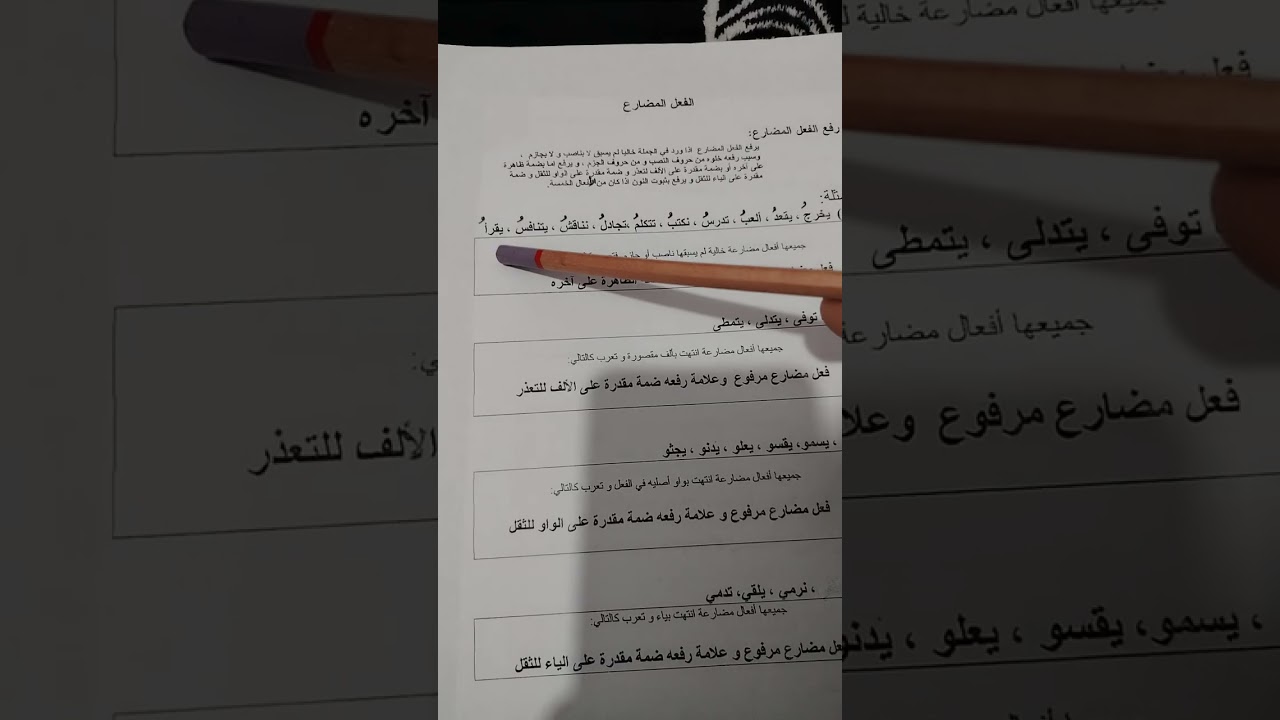 الفعل المضارع
رفع الفعل المضارع:
يرفع الفعل المضارع اذا ورد في الجملة خاليا لم يسبق لا بناصب و لا بجازم ،
وسبب رفعه خلوه من حروف النصب و من حروف الجزم ، و يرفع اما بضمة ظاهرة
على آخره أو بضمة مقدرة على الألف لتعذر و ضمة مقدرة على الواو للثقل و ضمة
مقدرة على الياء للثقل و يرفع بثبوت النون اذا كان من الأفعال الخمسة.
) يخرجُ ، يبتعدُ ، ألعبُ ، تدرسُ ، نكتبُ ، تتكلمُ ،تجادلُ ، نناقشُ ، يتنافسُ ، يقرأُ
جميعها أفعال مضارعة خالية لم يسبقها ناصب أو جازم
الظاهرة على آخره
توفى ، يتدلى ، يتمطى
جميعها أفعال مضارعة انتهت بألف مقصورة و تعرب كالتالي:
فعل مضارع مرفوع وعلامة رفعه ضمة مقدرة على الألف للتعذر
، يسمو، يقسو ، يعلو ، يدنو ، يجثو
جميعها أفعال مضارعة انتهت بواو أصليه في الفعل و تعرب كالتالي:
فعل مضارع مرفوع و علامة رفعه ضمة مقدرة على الواو للثقل
، نرمي ، يلقي، تدمي
جميعها أفعال مضارعة انتهت بياء و تعرب كالتالي:
مضارع مرفوع و علامة رفعه ضمة مقدرة على الياء للثقل